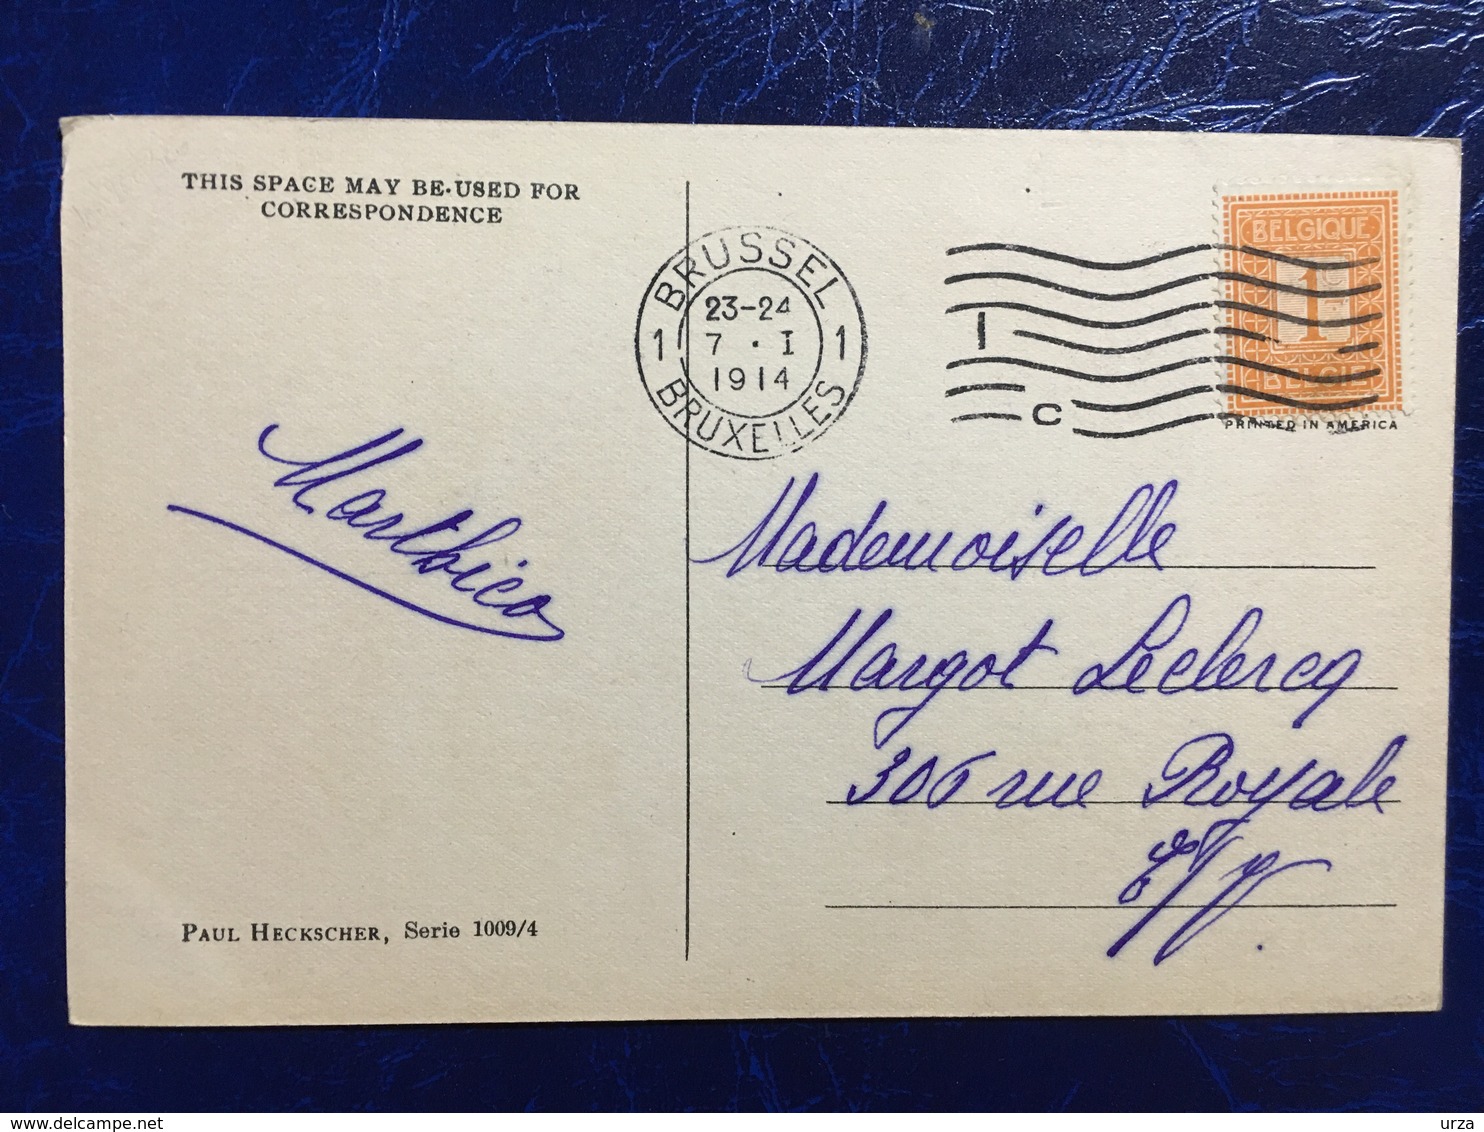 THIS SPACE MAY BE USED FOR
CORRESPONDENCE
BRUSSEL
23-24
1 7 · I 1
1914
BRUXELLES
I
C
BELGIQUE
1
BELGIE
PRINTED IN AMERICA
Mademoiselle
Margot Leclercq
306 rue Royale
E/V
PAUL HECKSCHER, Serie 1009/4
urza